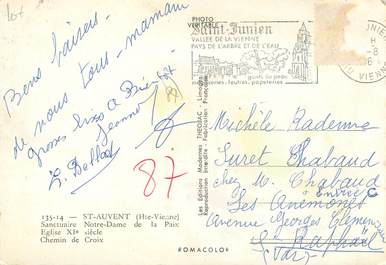 PHOTO
VÉRITABLE
Saint-Junien
VALLÉE DE LA VIENNE
PAYS DE L'ARBRE ET DE L'EAU
gants de peau
mégisseries-feutres, papeteries
VIENNE
Bons baisers
de nous tous - maman
grosses bises à
87
Michèle Radenne
Suret Chabaud
chez M. Chabaud
Les Anémones
Avenue Georges Clemenceau
St Raphaël
Var
Les Editions Modernes THEOJAC - Limoges
Reproduction Interdite - Fabrication Française
135-14 — ST-AUVENT (Hte-Vienne)
Sanctuaire Notre-Dame de la Paix
Eglise XIe siècle
Chemin de Croix
ROMACOLOR